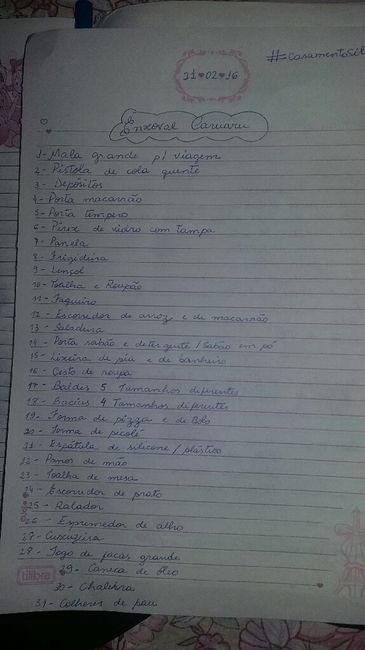 #CasamentoSil
21♥02♥16
Enxoval Caruaru
1- Mala grande p/ viagem
2- Pistola de cola quente
3- Depósitos
4- Porta macarrão
5- Porta tempero
6- Pirex de vidro com tampa
7- Panela
8- Frigideira
9- Lençol
10- Toalha e Roupão
11- Faqueiro
12- Escorredor de arroz e de macarrão
13- Saladeira
14- Porta sabão e detergente / Sabão em pó
15- Lixeira de pia e de banheiro
16- Cesto de roupa
17- Baldes 5 Tamanhos diferentes
18- Bacias 4 Tamanhos diferentes
19- Forma de pizza e de Bolo
20- Forma de picolé
21- Espátula de silicone / plástico
22- Panos de mão
23- Toalha de mesa
24- Escorredor de prato
25- Ralador
26- Espremedor de alho
27- Cuscuzeira
28- Jogo de facas grande
29- Caneca de óleo
30- Chaleira
31- Colheres de pau
tilibra